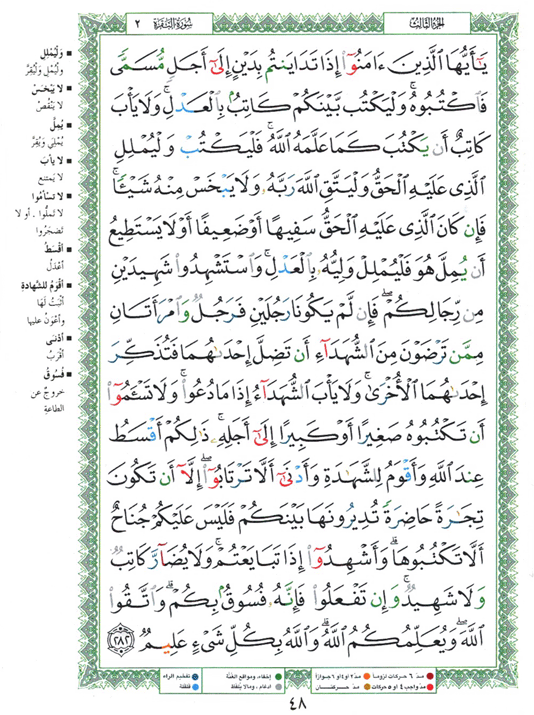 الجزء الثالث
سورة البقرة ٢
يَـٰٓأَيُّهَا ٱلَّذِينَ ءَامَنُوٓا۟ إِذَا تَدَايَنتُم بِدَيْنٍ إِلَىٰٓ أَجَلٍ مُّسَمًّى
فَٱكْتُبُوهُ ۚ وَلْيَكْتُب بَّيْنَكُمْ كَاتِبٌۢ بِٱلْعَدْلِ ۚ وَلَا يَأْبَ
كَاتِبٌ أَن يَكْتُبَ كَمَا عَلَّمَهُ ٱللَّهُ ۚ فَلْيَكْتُبْ وَلْيُمْلِلِ
ٱلَّذِى عَلَيْهِ ٱلْحَقُّ وَلْيَتَّقِ ٱللَّهَ رَبَّهُۥ وَلَا يَبْخَسْ مِنْهُ شَيْـًٔا ۚ
فَإِن كَانَ ٱلَّذِى عَلَيْهِ ٱلْحَقُّ سَفِيهًا أَوْ ضَعِيفًا أَوْ لَا يَسْتَطِيعُ
أَن يُمِلَّ هُوَ فَلْيُمْلِلْ وَلِيُّهُۥ بِٱلْعَدْلِ ۚ وَٱسْتَشْهِدُوا۟ شَهِيدَيْنِ
مِن رِّجَالِكُمْ ۖ فَإِن لَّمْ يَكُونَا رَجُلَيْنِ فَرَجُلٌ وَٱمْرَأَتَانِ
مِمَّن تَرْضَوْنَ مِنَ ٱلشُّهَدَآءِ أَن تَضِلَّ إِحْدَىٰهُمَا فَتُذَكِّرَ
إِحْدَىٰهُمَا ٱلْأُخْرَىٰ ۚ وَلَا يَأْبَ ٱلشُّهَدَآءُ إِذَا مَا دُعُوا۟ ۚ وَلَا تَسْـَٔمُوٓا۟
أَن تَكْتُبُوهُ صَغِيرًا أَوْ كَبِيرًا إِلَىٰٓ أَجَلِهِۦ ۚ ذَٰلِكُمْ أَقْسَطُ
عِندَ ٱللَّهِ وَأَقْوَمُ لِلشَّهَـٰدَةِ وَأَدْنَىٰٓ أَلَّا تَرْتَابُوٓا۟ ۖ إِلَّآ أَن تَكُونَ
تِجَـٰرَةً حَاضِرَةً تُدِيرُونَهَا بَيْنَكُمْ فَلَيْسَ عَلَيْكُمْ جُنَاحٌ
أَلَّا تَكْتُبُوهَا ۗ وَأَشْهِدُوٓا۟ إِذَا تَبَايَعْتُمْ ۚ وَلَا يُضَآرَّ كَاتِبٌ
وَلَا شَهِيدٌ ۚ وَإِن تَفْعَلُوا۟ فَإِنَّهُۥ فُسُوقٌۢ بِكُمْ ۗ وَٱتَّقُوا۟
ٱللَّهَ ۖ وَيُعَلِّمُكُمُ ٱللَّهُ ۗ وَٱللَّهُ بِكُلِّ شَىْءٍ عَلِيمٌ ٢٨٢
وَلْيُمْلِلِ
وَلْيُمْلِ وَلْيُقِرَّ
لا يَبْخَسْ
لا يَنْقُصْ
يُمِلَّ
يُمْلِيَ وَيُقِرَّ
لا يَأْبَ
لا يمتنع
لا تسأموا
لا تملّوا . أو لا
تضجروا
أقسط
أعدل
أقوم للشهادة
أثبت لها
وأعون عليها
أدنى
أقرب
فسوق
خروج عن
الطاعة
مدّ ٦ حركات لزوماً
مدّ ٢ أو ٤ أو ٦ جوازاً
إخفاء، ومواقع الغنّة
تفخيم الراء
مدّ واجب ٤ أو ٥ حركات
مدّ حركتان
ادغام، وما لا يُلفظ
قلقلة
٤٨